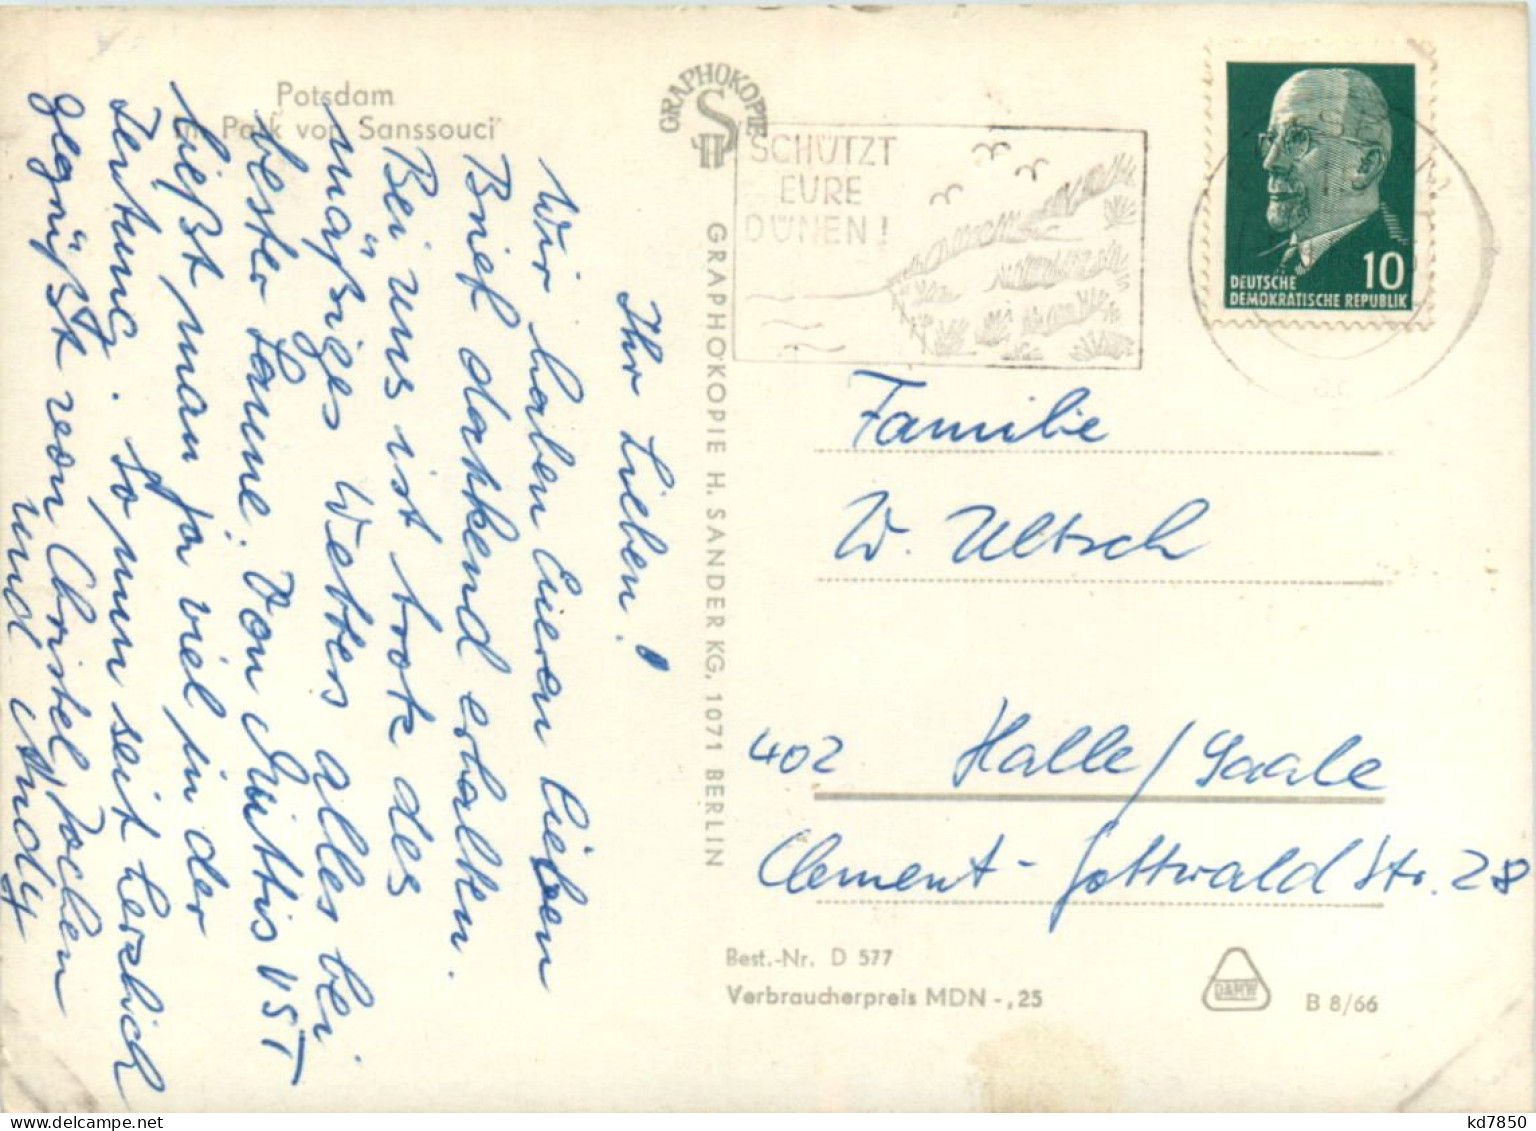 Potsdam
Im Park von Sanssouci
Ihr Lieben!
Wir haben Eueren lieben
Brief dankend erhalten.
Bei uns ist trotz des
mäßiges Wetters alles bei
bester Laune. Von Muttis
liest man ja viel in der
Zeitung. So nun seit herzlich
gegrüßt von Christel, Jochen
und Andy
GRAPHOKOPIE
GRAPHOKOPIE H. SANDER KG, 1071 BERLIN
SCHÜTZT
EURE
DÜNEN!
10
DEUTSCHE
DEMOKRATISCHE REPUBLIK
Familie
W. Ultsch
402 Halle/Saale
Clement-Gottwald Str. 28
Best.-Nr. D 577
Verbraucherpreis MDN -,25
DAMW
B 8/66
kd7850